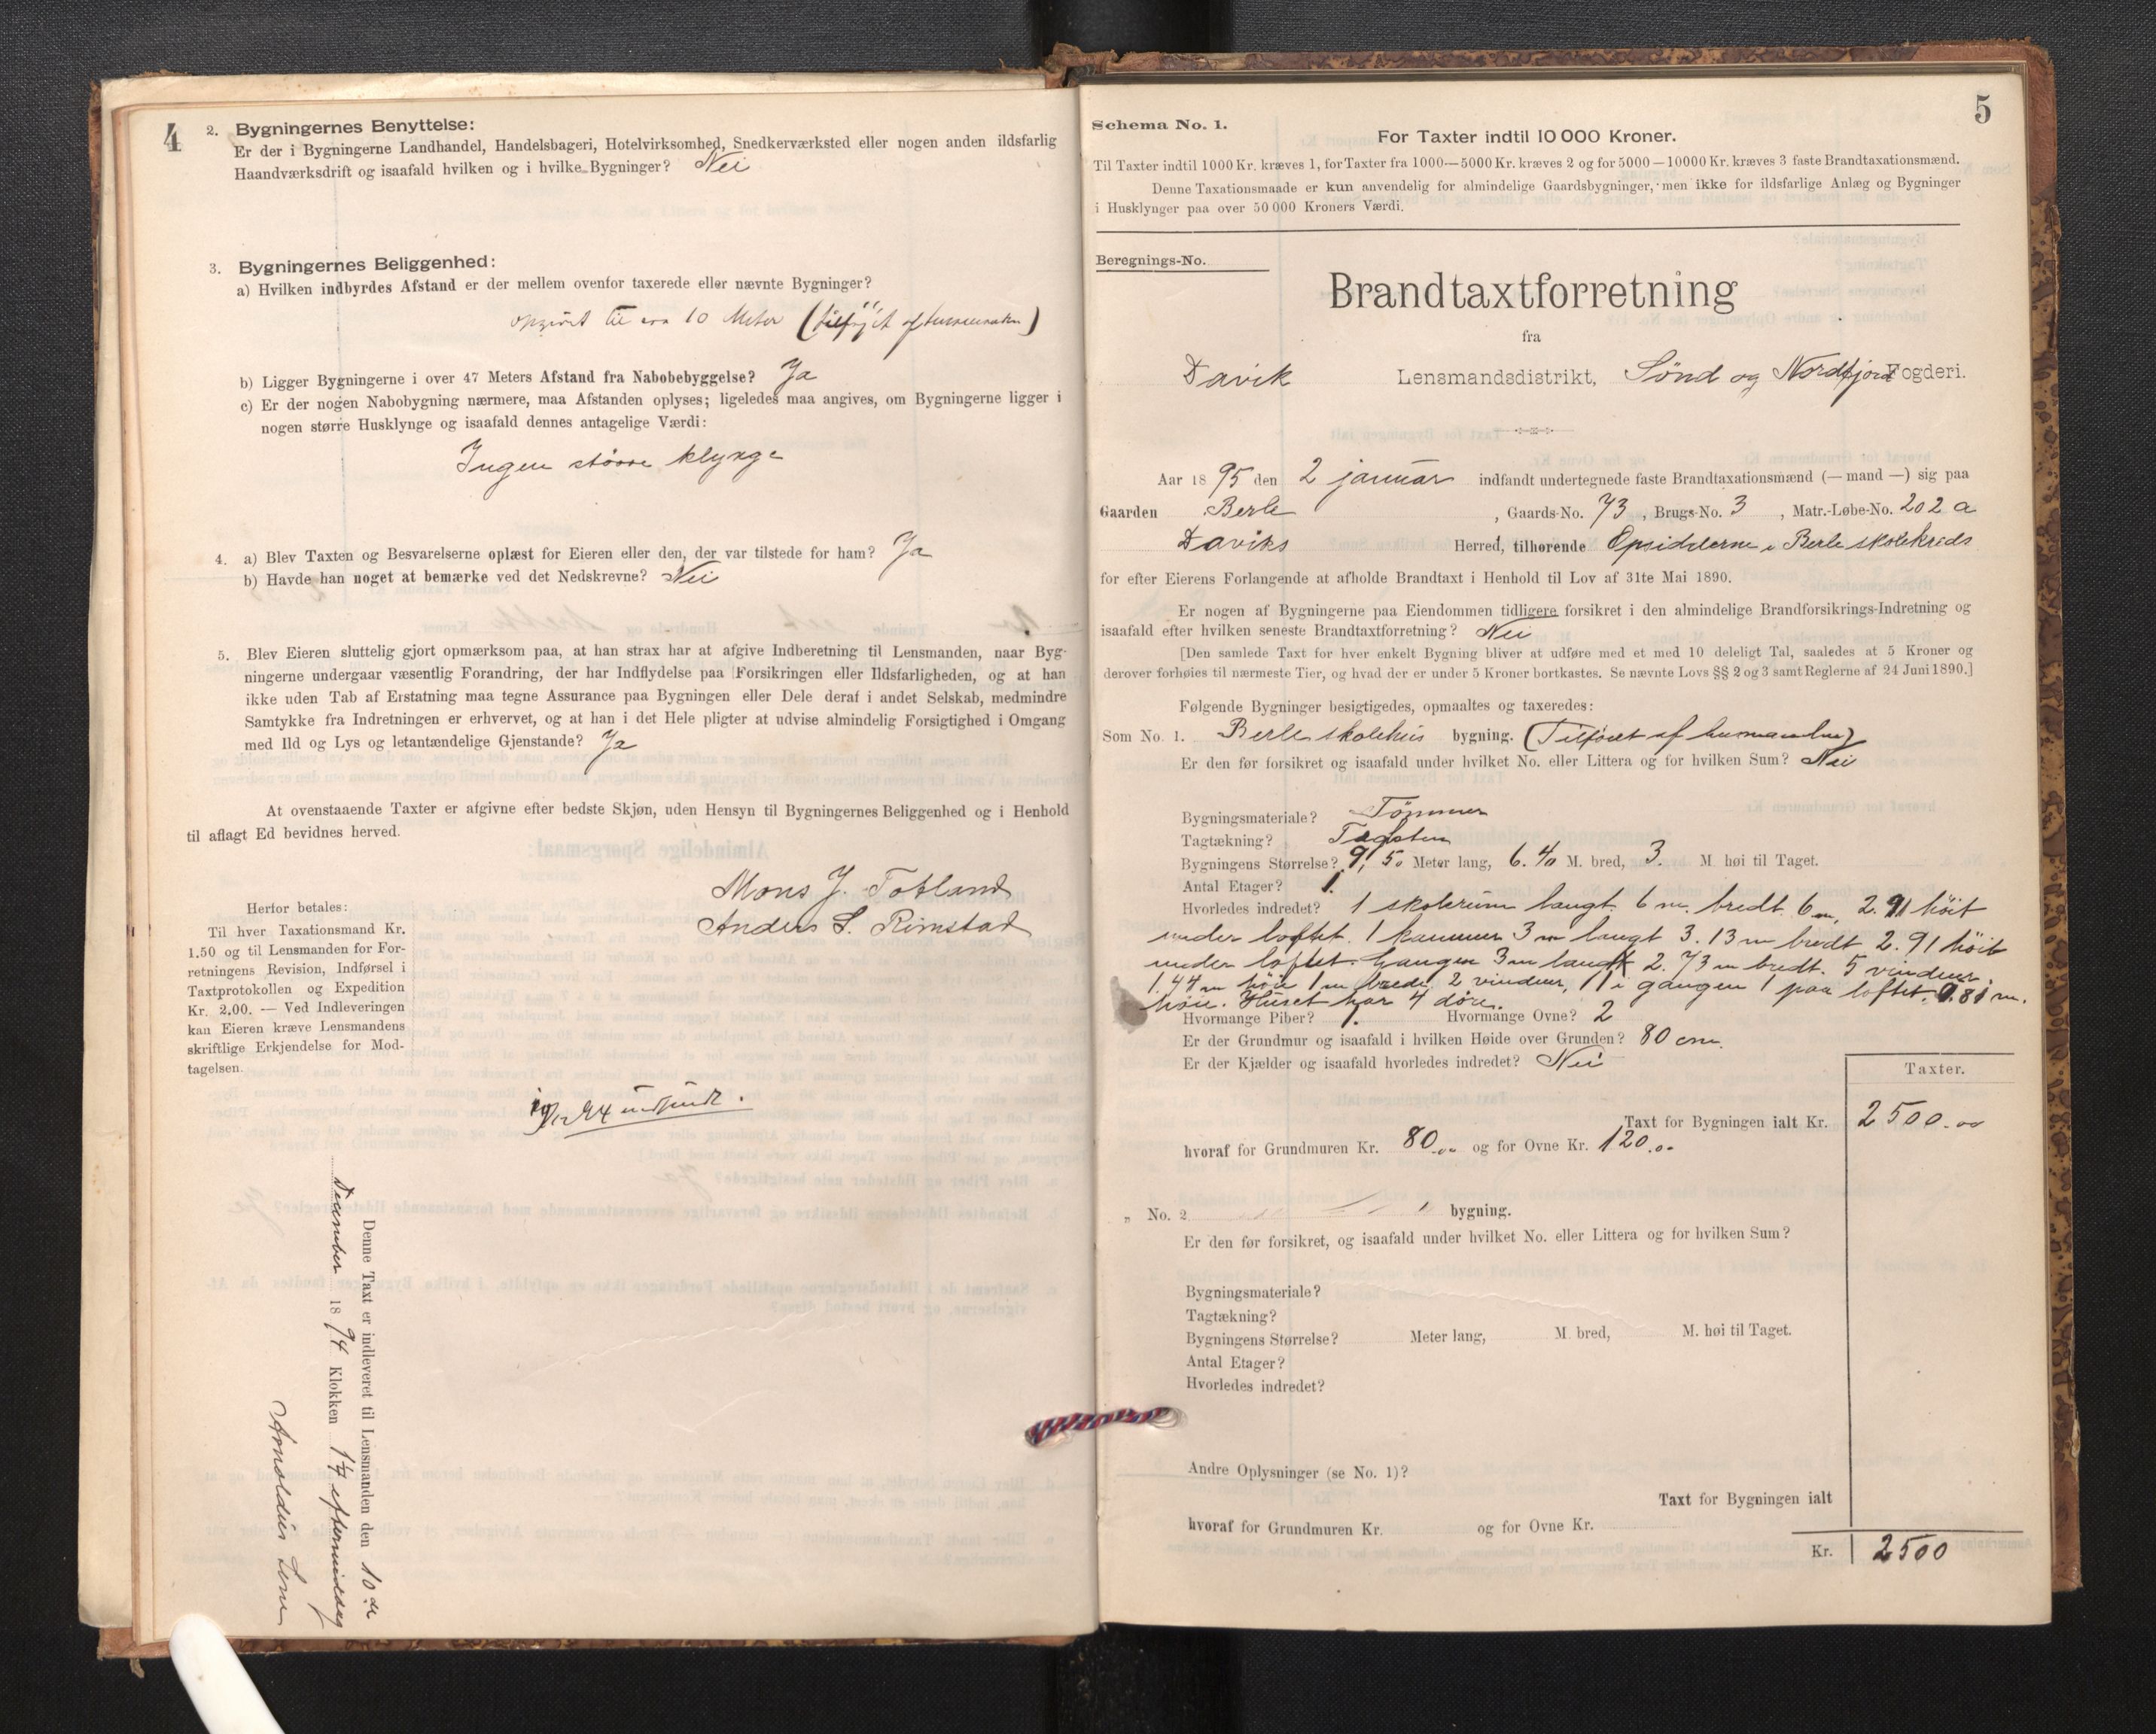 4
2. Bygningernes Benyttelse:
Er der i Bygningerne Landhandel, Handelsbageri, Hotelvirksomhed, Snedkerværksted eller nogen anden ildsfarlig
Haandværksdrift og isaafald hvilken og i hvilke Bygninger? Nei
3. Bygningernes Beliggenhed:
a) Hvilken indbyrdes Afstand er der mellem ovenfor taxerede eller nævnte Bygninger?
opgivet til 10 Meter (tilføjet af lensmanden)
b) Ligger Bygningerne i over 47 Meters Afstand fra Nabobebyggelse? Ja
c) Er der nogen Nabobygning nærmere, maa Afstanden oplyses; ligeledes maa angives, om Bygningerne ligger i
nogen større Husklynge og isaafald dennes antagelige Værdi:
Ingen større klynge
4. a) Blev Taxten og Besvarelserne oplæst for Eieren eller den, der var tilstede for ham? Ja
b) Havde han noget at bemærke ved det Nedskrevne? Nei
5. Blev Eieren sluttelig gjort opmærksom paa, at han strax har at afgive Indberetning til Lensmanden, naar Byg-
ningerne undergaar væsentlig Forandring, der har Indflydelse paa Forsikringen eller Ildsfarligheden, og at han
ikke uden Tab af Erstatning maa tegne Assurance paa Bygningen eller Dele deraf i andet Selskab, medmindre
Samtykke fra Indretningen er erhvervet, og at han i det Hele pligter at udvise almindelig Forsigtighed i Omgang
med Ild og Lys og letantændelige Gjenstande? Ja
At ovenstaaende Taxter er afgivne efter bedste Skjøn, uden Hensyn til Bygningernes Beliggenhed og i Henhold
til aflagt Ed bevidnes herved.
Mons J. Totland
Anders S. Rimstad
Herfor betales:
Til hver Taxationsmand Kr.
1.50 og til Lensmanden for For-
retningens Revision, Indførsel i
Taxtprotokollen og Expedition
Kr. 2,00. — Ved Indleveringen
kan Eieren kræve Lensmandens
skriftlige Erkjendelse for Mod-
tagelsen.
Denne Taxt er indleveret til Lensmanden den 10de
December 1894 Klokken 1½ eftermiddag
5
Schema No. 1.
For Taxter indtil 10 000 Kroner.
Til Taxter indtil 1000 Kr. kræves 1, for Taxter fra 1000—5000 Kr. kræves 2 og for 5000—10000 Kr. kræves 3 faste Brandtaxationsmænd.
Denne Taxationsmaade er kun anvendelig for almindelige Gaardsbygninger, men ikke for ildsfarlige Anlæg og Bygninger
i Husklynger paa over 50 000 Kroners Værdi.
Beregnings-No.
Brandtaxtforretning
fra
Davik Lensmandsdistrikt, Sønd og Nordfjord Fogderi.
Aar 1895 den 2 januar indfandt undertegnede faste Brandtaxationsmænd (— mand —) sig paa
Gaarden Berle, Gaards-No. 73, Brugs-No. 3, Matr.-Løbe-No. 202 a
Daviks Herred, tilhørende Opsidderne i Berle skolekreds
for efter Eierens Forlangende at afholde Brandtaxt i Henhold til Lov af 31te Mai 1890.
Er nogen af Bygningerne paa Eiendommen tidligere forsikret i den almindelige Brandforsikrings-Indretning og
isaafald efter hvilken seneste Brandtaxtforretning? Nei
[Den samlede Taxt for hver enkelt Bygning bliver at udføre med et med 10 deleligt Tal, saaledes at 5 Kroner og
derover forhøies til nærmeste Tier, og hvad der er under 5 Kroner bortkastes. Se nævnte Lovs §§ 2 og 3 samt Reglerne af 24 Juni 1890.]
Følgende Bygninger besigtigedes, opmaaltes og taxeredes:
Som No. 1. Berle skolehus bygning. (Tilføiet af lensmanden)
Er den før forsikret og isaafald under hvilket No. eller Littera og for hvilken Sum? Nei
Bygningsmateriale? Tømmer
Tagtækning? Tagsten
Bygningens Størrelse? 9,50 Meter lang, 6.40 M. bred, 3. M høi til Taget.
Antal Etager? 1.
Hvorledes indredet? 1 skolerum langt 6 m. bredt 6 m, 2.91 høit
under loftet. 1 kammer 3 m langt 3.13 m bredt 2.91 høit
under loftet. Gangen 3 m langt 2.73 m bredt. 5 vinduer
1.44 m høie 1 m brede, 2 vinduer, 1 i gangen 1 paa loftet, 0.81 m.
høie. Huset har 4 døre.
Hvormange Piber? 1. Hvormange Ovne? 2
Er der Grundmur og isaafald i hvilken Høide over Grunden? 80 cm.
Er der Kjælder og isaafald hvorledes indredet? Nei
Taxter.
Taxt for Bygningen ialt Kr. 2500.00
hvoraf for Grundmuren Kr. 80.00 og for Ovne Kr. 120.00
" No. 2 bygning.
Er den før forsikret, og isaafald under hvilket No. eller Littera og for hvilken Sum?
Bygningsmateriale?
Tagtækning?
Bygningens Størrelse? Meter lang, M. bred, M. høi til Taget.
Antal Etager?
Hvorledes indredet?
Andre Oplysninger (se No. 1)?
Taxt for Bygningen ialt
hvoraf for Grundmuren Kr. og for Ovne Kr.
Kr. 2500